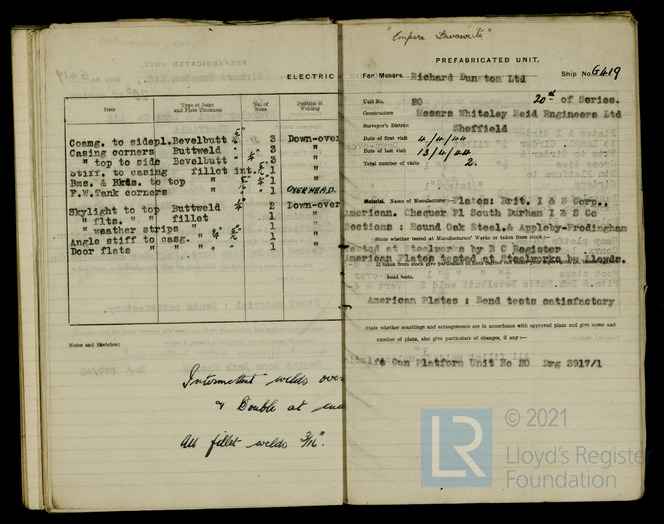 ELECTRIC
Item Type of Joint and Plate Thickness No. of Runs Position of Welding
Coamg. to sidepl. Bevelbutt 3 Down-over
Casing corners Buttweld " 3 "
" top to side Bevelbutt " 3 "
Stiff. to casing fillet int. 1 "
Bms. & Bkds. to top " 1 "
F.W.Tank corners " 1 OVERHEAD.
Skylight to top Buttweld 2 Down-over
" flts. " " fillet 1 "
" weather strips " 1 "
Angle stiff to casg. " 1 "
Door flats " " " " 1 "
Notes and Sketches:
Intermittent welds over
& Double at
All fillet welds 3/16".
"Empire Favourite"
PREFABRICATED UNIT.
For Messrs. Richard Dunston Ltd Ship No. G419
Unit No. 20 20th of Series.
Constructors Messrs Whiteley Reid Engineers Ltd
Surveyor's District Sheffield
Date of first visit 4/4/44
Date of last visit 13/4/44
Total number of visits 2.
Material. Name of Manufacturer:- Plates: Brit. I & S Corp.,
American. Chequer Pl South Durham I & S Co
Sections : Round Oak Steel. & Appleby-Frodingham
State whether tested at Manufacturers' Works or taken from stock:—
Tested at Steelworks by B C Register
American Plates tested at Steelworks by Lloyds.
If taken from stock give particulars of
bend tests.
American Plates : Bend tests satisfactory
State whether scantlings and arrangements are in accordance with approved plans and give name and
number of plans, also give particulars of changes, if any :—
Gun Platform Unit No 20 Drg 3917/1
LR
© 2021
Lloyd's Register
Foundation